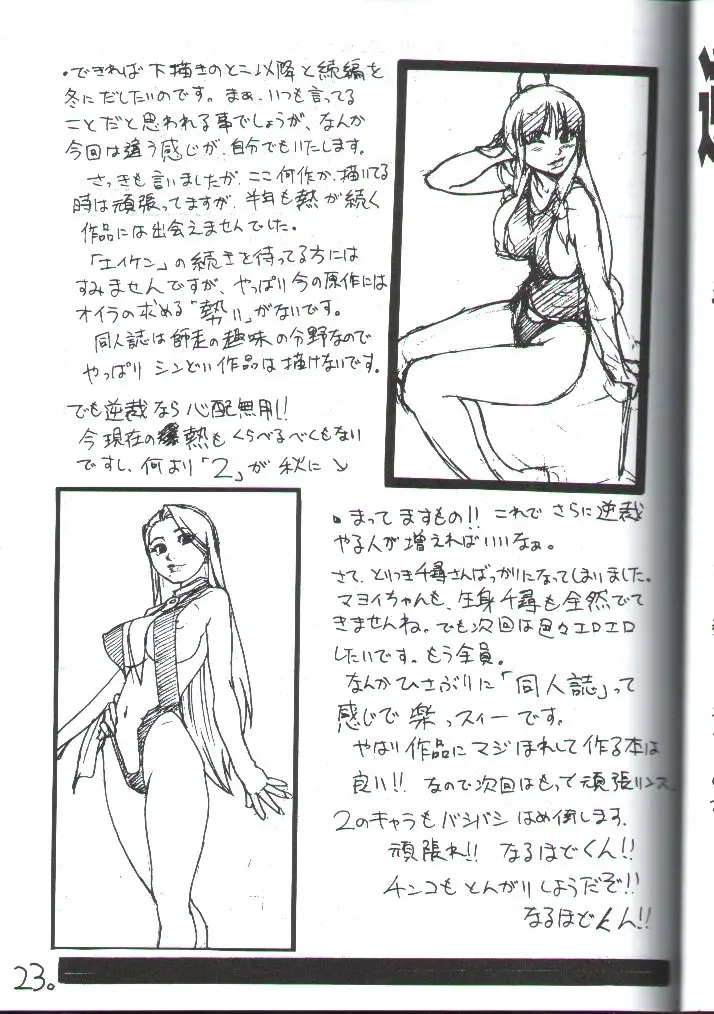 ・できれば下描きのとこ以降と続編を
冬にだしたいのです。まぁ、いつも言ってる
ことだと思われる事でしょうが、なんか
今回は違う感じが、自分でもいたします。
さっきも言いましたが、ここ何作か、描いてる
時は頑張ってますが、半年も熱が続く
作品には出会えませんでした。
「エイケン」の続きを待ってる方には
すみませんですが、やっぱり今の原作には
オイラの求める「勢い」がないです。
同人誌は師走の趣味の分野なので
やっぱり シンどい作品は描けないです。
でも逆裁なら心配無用!!
今現在の熱もくらべるべくもない
ですし、何より「2」が秋に
・まってますもの!! これでさらに逆裁
やる人が増えればいいなぁ。
さて、とりつき千尋さんばっかりになってしまいました。
マヨイちゃんも、生身千尋も全然でて
きませんね。でも次回は色々エロエロ
したいです。もう全員。
なんかひさぶりに「同人誌」って
感じで楽っスィーです。
やはり作品にマジほれして作る本は
良い!! なので次回はもって頑張リンス
2のキャラもバシバシはめ倒します。
頑張れ!! なるほどくん!!
チンコもとんがりしようだぞ!!
なるほどくん!!
23。